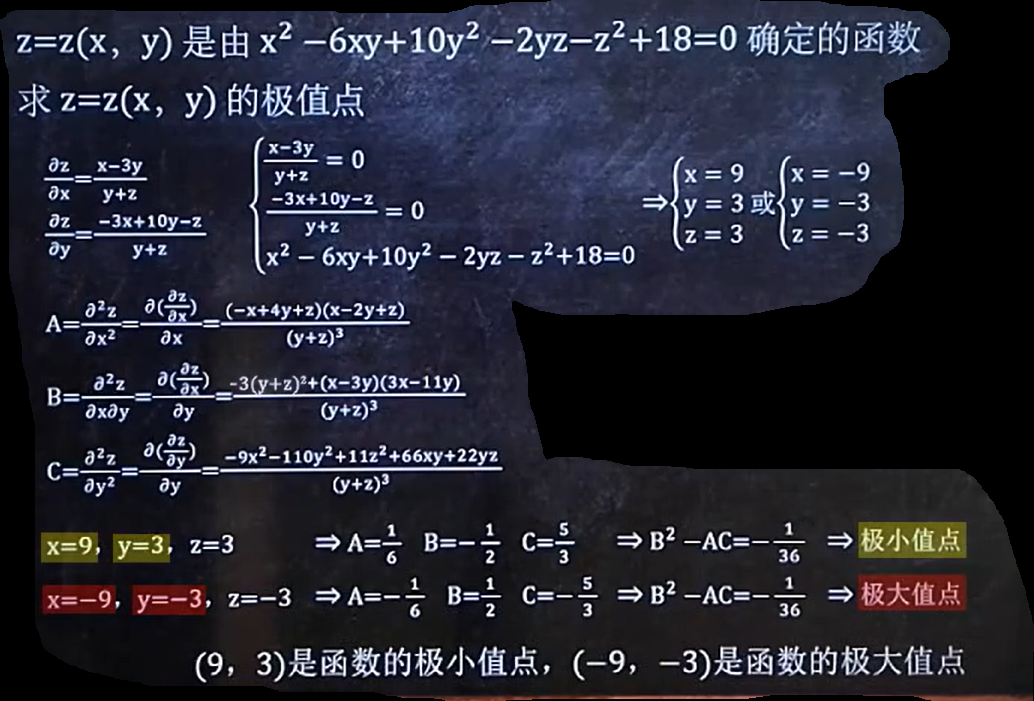 z=z(x, y) 是由 x² −6xy+10y² −2yz−z²+18=0 确定的函数
求 z=z(x, y) 的极值点
∂z/∂x = (x−3y)/(y+z)
∂z/∂y = (−3x+10y−z)/(y+z)
{ (x−3y)/(y+z) = 0
(−3x+10y−z)/(y+z) = 0
x² − 6xy+10y² − 2yz − z²+18=0
⇒ { x = 9 y = 3 z = 3 或 { x = −9 y = −3 z = −3
A= ∂²z/∂x² = ∂(∂z/∂x)/∂x = (−x+4y+z)(x−2y+z)/(y+z)³
B= ∂²z/∂x∂y = ∂(∂z/∂x)/∂y = (-3(y+z)²+(x−3y)(3x−11y))/(y+z)³
C= ∂²z/∂y² = ∂(∂z/∂y)/∂y = (−9x²−110y²+11z²+66xy+22yz)/(y+z)³
x=9, y=3, z=3 ⇒ A=1/6 B=−1/2 C=5/3 ⇒ B² −AC=−1/36 ⇒ 极小值点
x=−9, y=−3, z=−3 ⇒ A=−1/6 B=1/2 C=−5/3 ⇒ B² −AC=−1/36 ⇒ 极大值点
(9, 3)是函数的极小值点, (−9, −3)是函数的极大值点